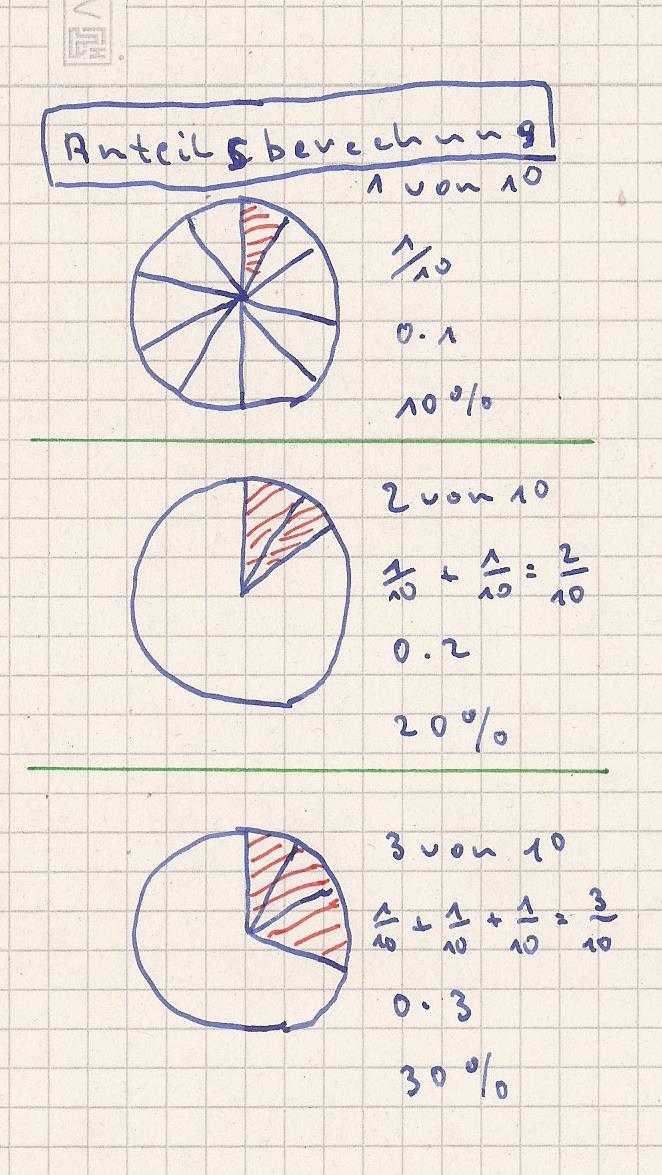 Anteilsberechnung
1 von 10
1/10
0.1
10%
2 von 10
1/10 + 1/10 = 2/10
0.2
20%
3 von 10
1/10 + 1/10 + 1/10 = 3/10
0.3
30%